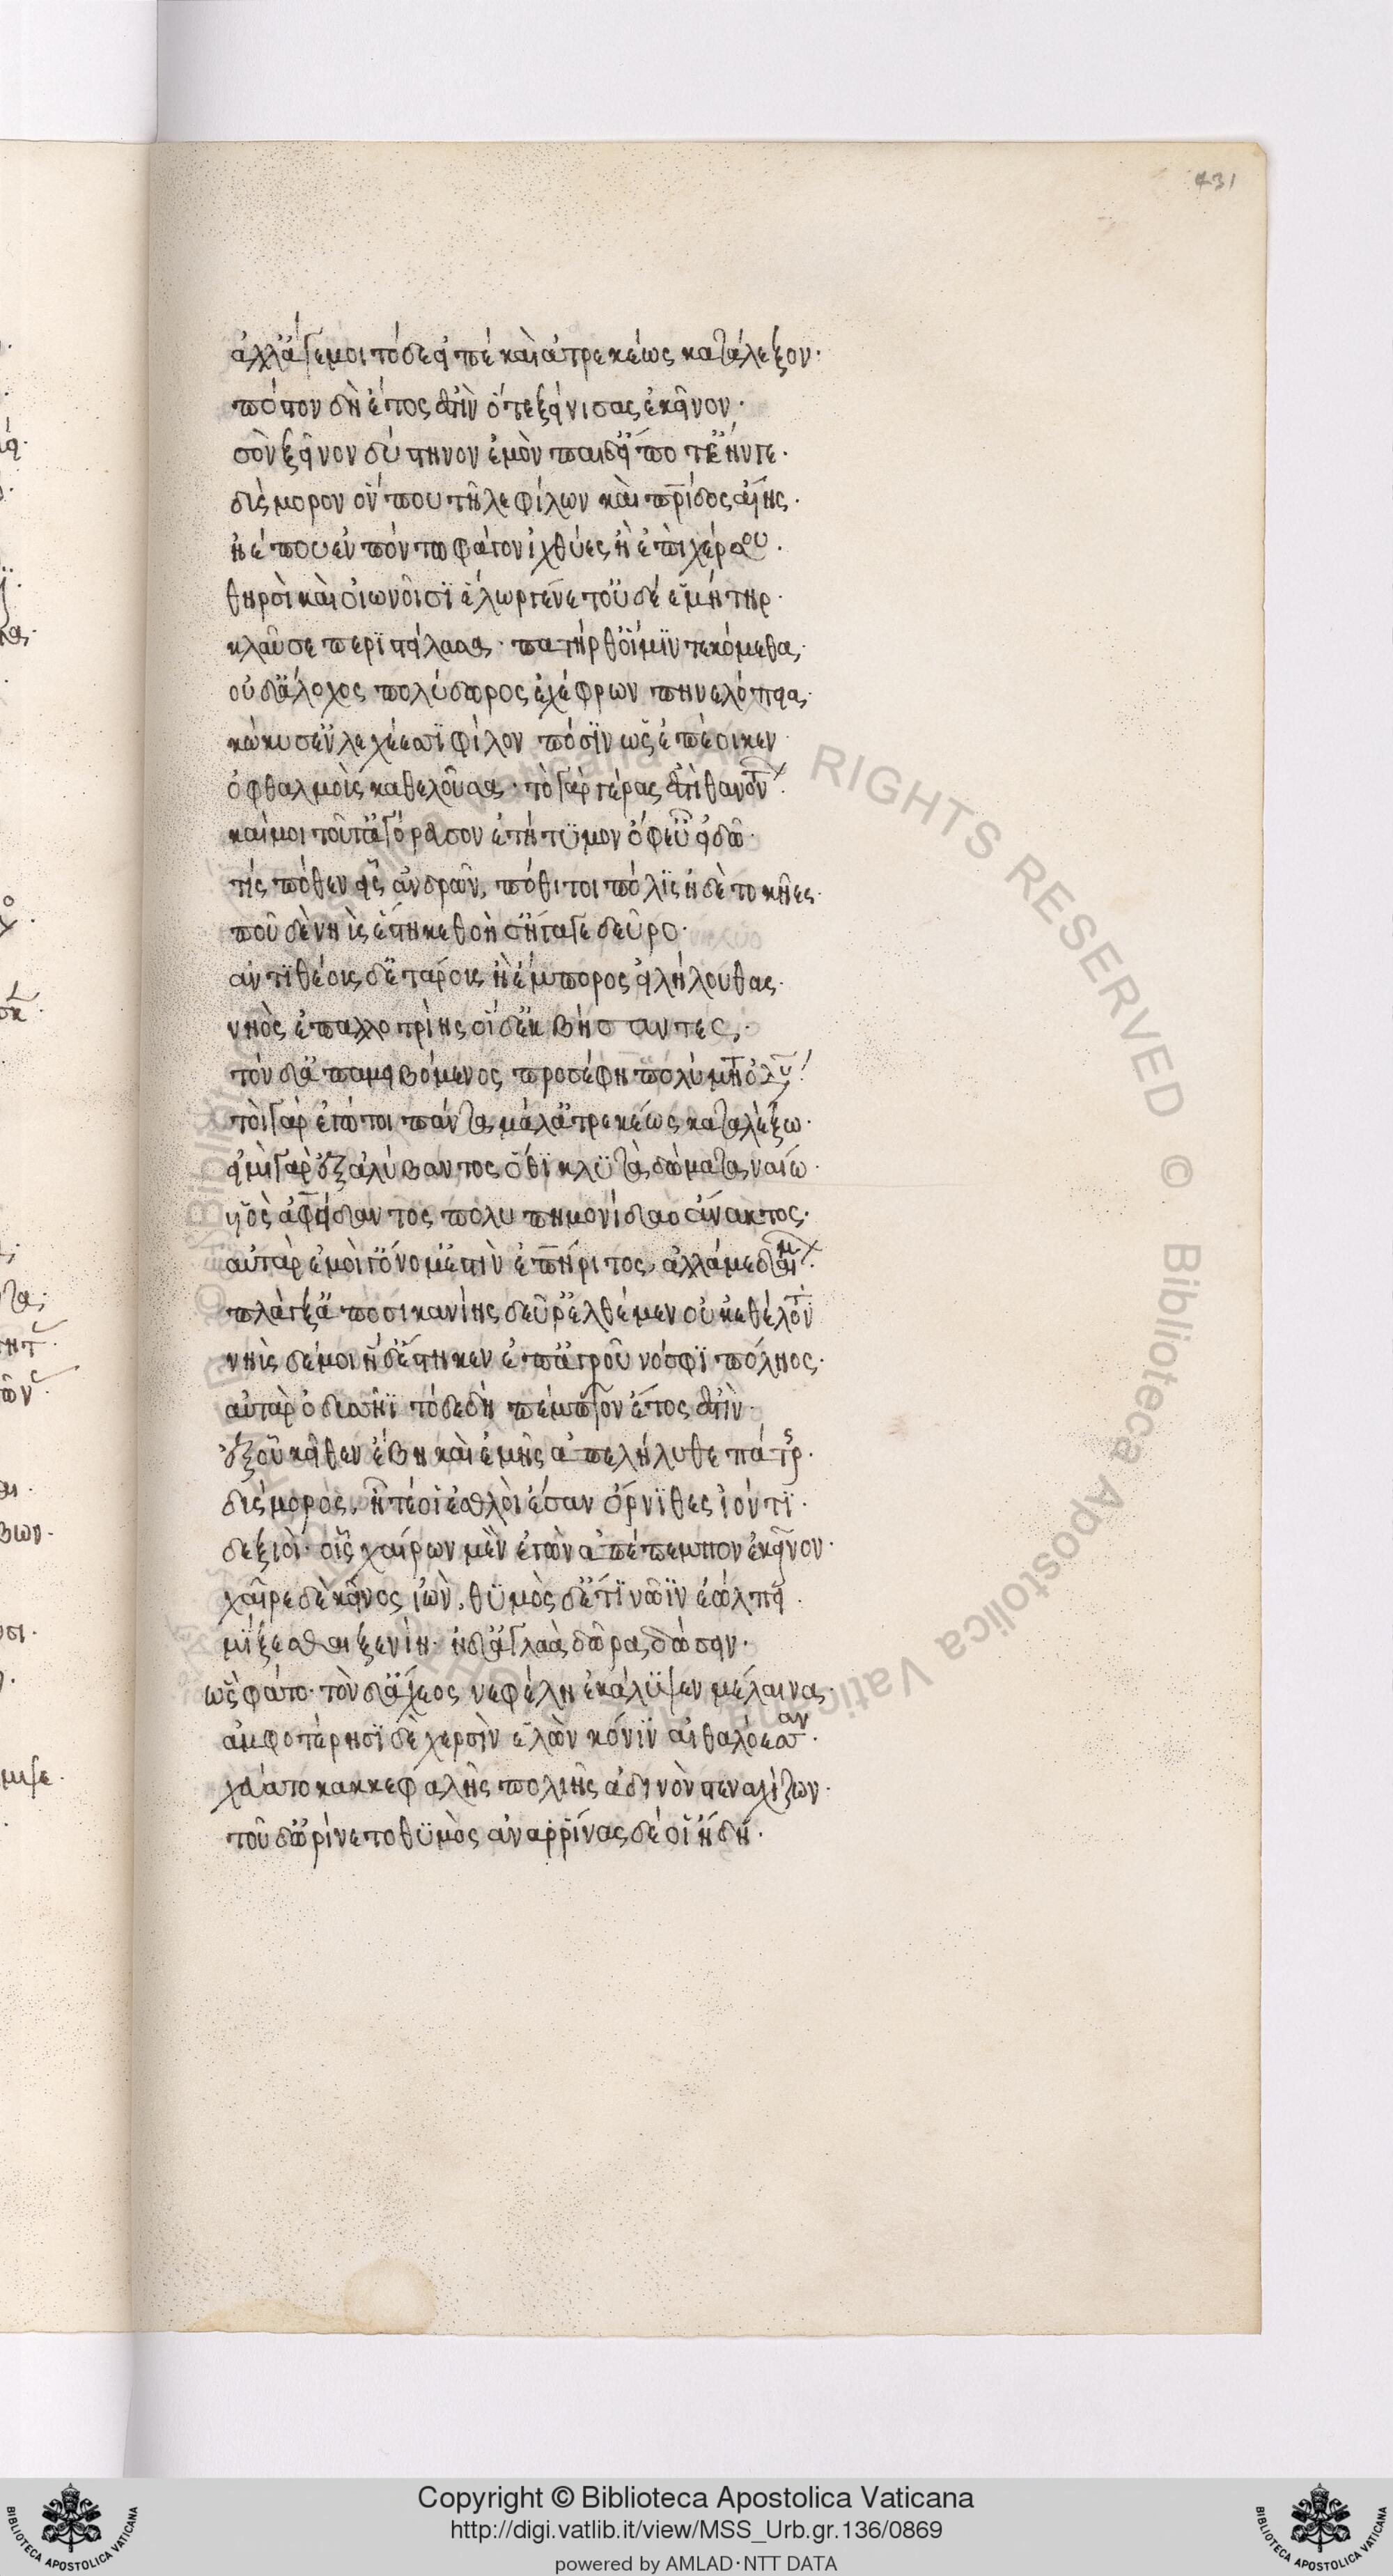 431
ἀλλ' ἄγε μοι τόδε εἰπὲ καὶ ἀτρεκέως κατάλεξον·
πόστον δὴ ἔτος ἐστὶν ὅτε ξείνισας ἐκεῖνον·
σὸν ξεῖνον δύστηνον ἐμὸν παῖδ' εἴ ποτ' ἔην γε·
δύσμορον ὅν που τῆλε φίλων καὶ πρίδος αἴης·
ἠέ που ἐν πόντω φάγον ἰχθύες ἢ ἐπὶ χέρσου·
θηρσὶ καὶ οἰωνοῖσιν ἕλωρ γένετ' οὐδέ ἑ μήτηρ·
κλαῦσε περιστείλασα· πατήρ θ' οἵ μιν τεκόμεσθα·
οὐδ' ἄλοχος πολύδωρος ἐχέφρων πηνελόπεια·
κώκυσ' ἐν λεχέεσσι φίλον πόσιν ὡς ἐπέοικεν
ὀφθαλμοὺς καθελοῦσα· τὸ γὰρ γέρας ἐστὶ θανόντ·
καί μοι τοῦτ' ἀγόρευσον ἐτήτυμον ὄφρ' εὖ εἰδῶ·
τίς πόθεν εἶς ἀνδρῶν, πόθι τοι πόλις ἠδὲ τοκῆες·
ποῦ δὲ νηῦς ἕστηκε θοὴ ἥ σ' ἤγαγε δεῦρο·
ἀντιθέους δ' ἑτάρους ἢ ἔμπορος εἰλήλουθας·
νηὸς ἐπ' αλλοτρίης οἱ δ' ἐκβήσαντες·
τὸν δ' ἀπαμειβόμενος προσέφη πολύμητ ὀδυ·
τοὶ γὰρ ἐγώ τοι πάντα μάλ' ἀτρεκέως καταλέξω·
εἰμὶ γὰρ ἐξ αλύβαντος ὅθι κλυτὰ δώματα ναίω·
υἱὸς ἀφείδαντος πολυπημονίδαο ἄνακτος·
αὐτὰρ ἐμοί γ' ὄνομ' ἐστὶν ἐπήριτος, ἀλλά με δαίμ·
πλάγξ' ἀπὸ σικανίης δεῦρ' ἐλθέμεν οὐκ ἐθέλοντ·
νηῦς δέ μοι ἥδ' ἕστηκεν ἐπ' ἀγροῦ νόσφι πόληος·
αὐτὰρ ὀδυσσῆϊ τόδε δὴ πέμπτον ἔτος ἐστὶν·
ἐξ οὗ κεῖθεν ἔβη καὶ ἐμῆς ἀπελήλυθε πάτρης·
δύσμορος. ἦ τέ οἱ ἐσθλοὶ ἔσαν ὄρνιθες ἰόντι·
δεξιοί· οἷς χαίρων μὲν ἐγὼν ἀπέπεμπον ἐκεῖνον·
χαῖρε δὲ κεῖνος ἰὼν. θυμὸς δ' ἔτι νῶϊν ἐώλπει·
μίξεσθαι ξενίη· ἠδ' ἀγλαὰ δῶρα δώσειν·
ὣς φάτο· τὸν δ' ἄχεος νεφέλη ἐκάλυψεν μέλαινα·
ἀμφοτέρησι δὲ χερσὶν ἑλὼν κόνιν αἰθαλόεσσαν·
χεύατο κακκεφαλῆς πολιῆς ἀδινὸν στεναχίζων·
τοῦ δ' ὠρίνετο θυμὸς ἀνα ῥῖνας δέ οἱ ἤδη·
Copyright © Biblioteca Apostolica Vaticana
http://digi.vatlib.it/view/MSS_Urb.gr.136/0869
powered by AMLAD·NTT DATA